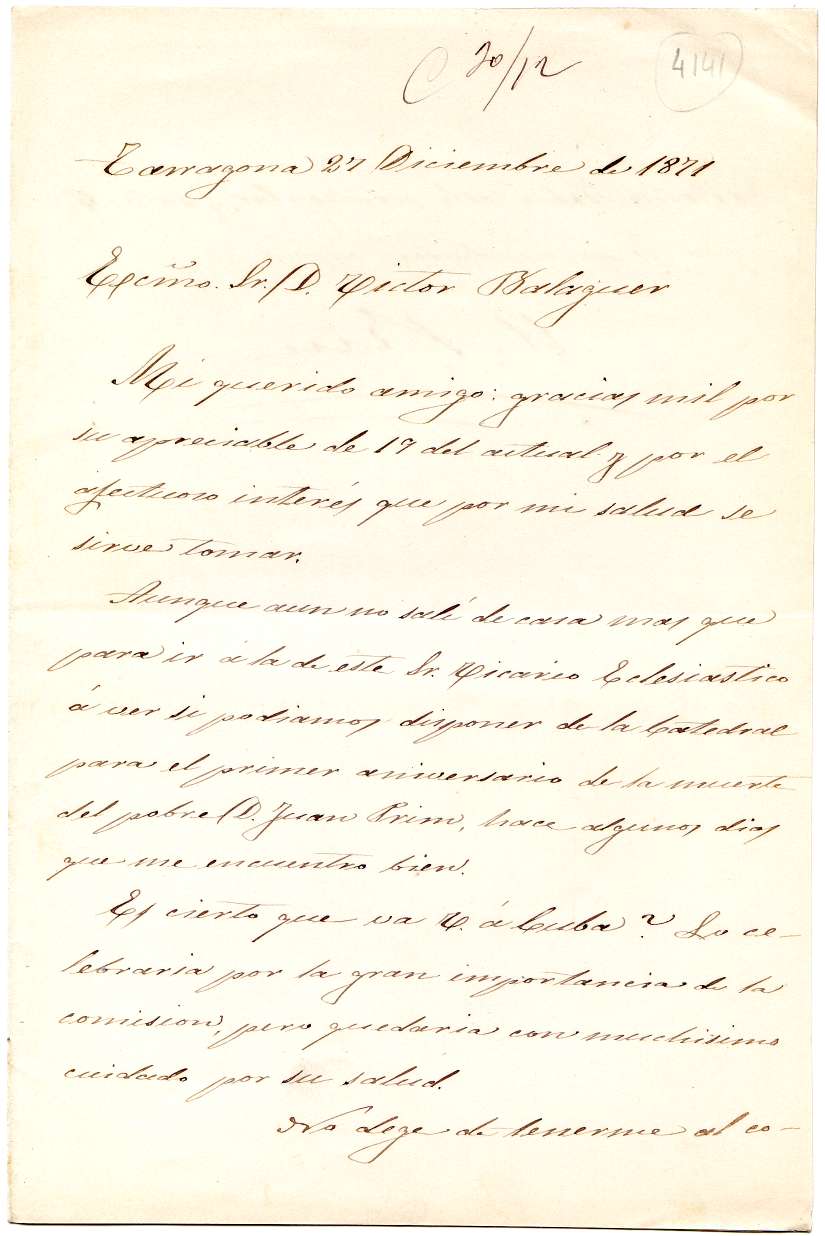 C 30/12
4141
Tarragona 27 Diciembre de 1871
Excm̃o. Sr. D. Victor Balaguer
Mi querido amigo: gracias mil por
su apreciable de 19 del actual y por el
afectuoso interés que por mi salud se
sirve tomar.
Aunque aun no salí de casa mas que
para ir á la de este Sr. Vicario Eclesiastico
á ver si podiamos disponer de la Catedral
para el primer aniversario de la muerte
del pobre D. Juan Prim, hace algunos dias
que me encuentro bien.
Es cierto que va V. á Cuba? Lo ce-
lebraria por la gran importancia de la
comision, pero quedaria con muchisimo
cuidado por su salud.
No dege de tenerme al co-